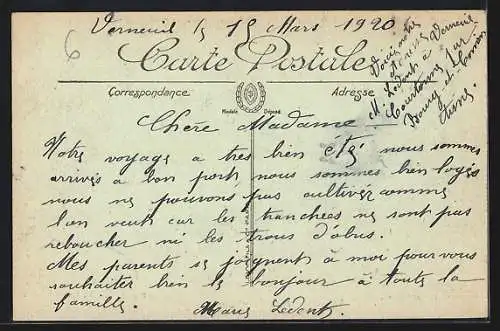 Verneuil le 15 Mars 1920
6
Carte Postale
Correspondance
Adresse
Modèle Déposé
Voici notre
adresse
Mr Ledent à Verneuil
Courtonne sur
Bourg et Comin
Aisne
Chère Madame
Notre voyage a tres bien été nous sommes
arrivés a bon port, nous sommes bien logés
nous ne pouvons pas cultiver comme
l'on veut car les tranchees ne sont pas
reboucher ni les trous d'obus.
Mes parents se joignent a moi pour vous
souhaiter bien le bonjour a toute la
famille.
Marie Ledent